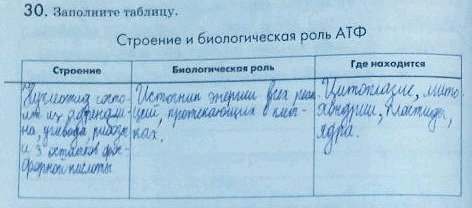 30. Заполните таблицу.
Строение и биологическая роль АТФ
Строение Биологическая роль Где находится
Нуклеотид состо-
ит из аденини-
на, углевода рибозы
и 3 остатков фос-
форной кислоты
Источник энергии всех реак-
ций, протекающих в клет-
ках.
Цитоплазме, мито-
хондрии, пластиды,
ядра.